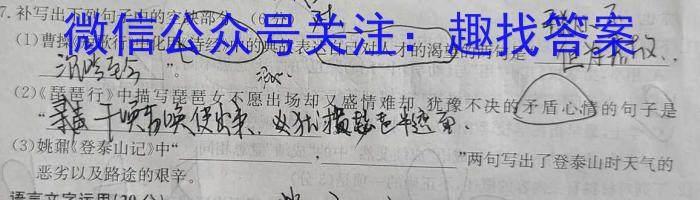 7.补写出下列句子中的空缺部分。(6分)
微信公众号关注：趣找答案
(1)曹操 歌行 《诗经 的典故表达自己对人才的渴望的两句是
沉吟至今”。
(2)《琵琶行》中描写琵琶女不愿出场却又盛情难却、犹豫不决的矛盾心情的句子是
“ 千唤万唤使出来，犹抱琵琶半遮面
(3)姚鼐《登泰山记》中“ ， ”两句写出了登泰山时天气的
恶劣以及路途的艰辛。
语言文字运用(20分)